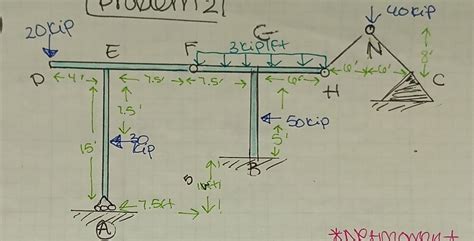 Problem 2
20kip
40kip
E
F
G
3kip/ft
N
8'
D
4'
7.5'
7.5'
6'
H
6'
6'
C
7.5'
15'
30
kip
50kip
5'
B
5
7.5ft
A